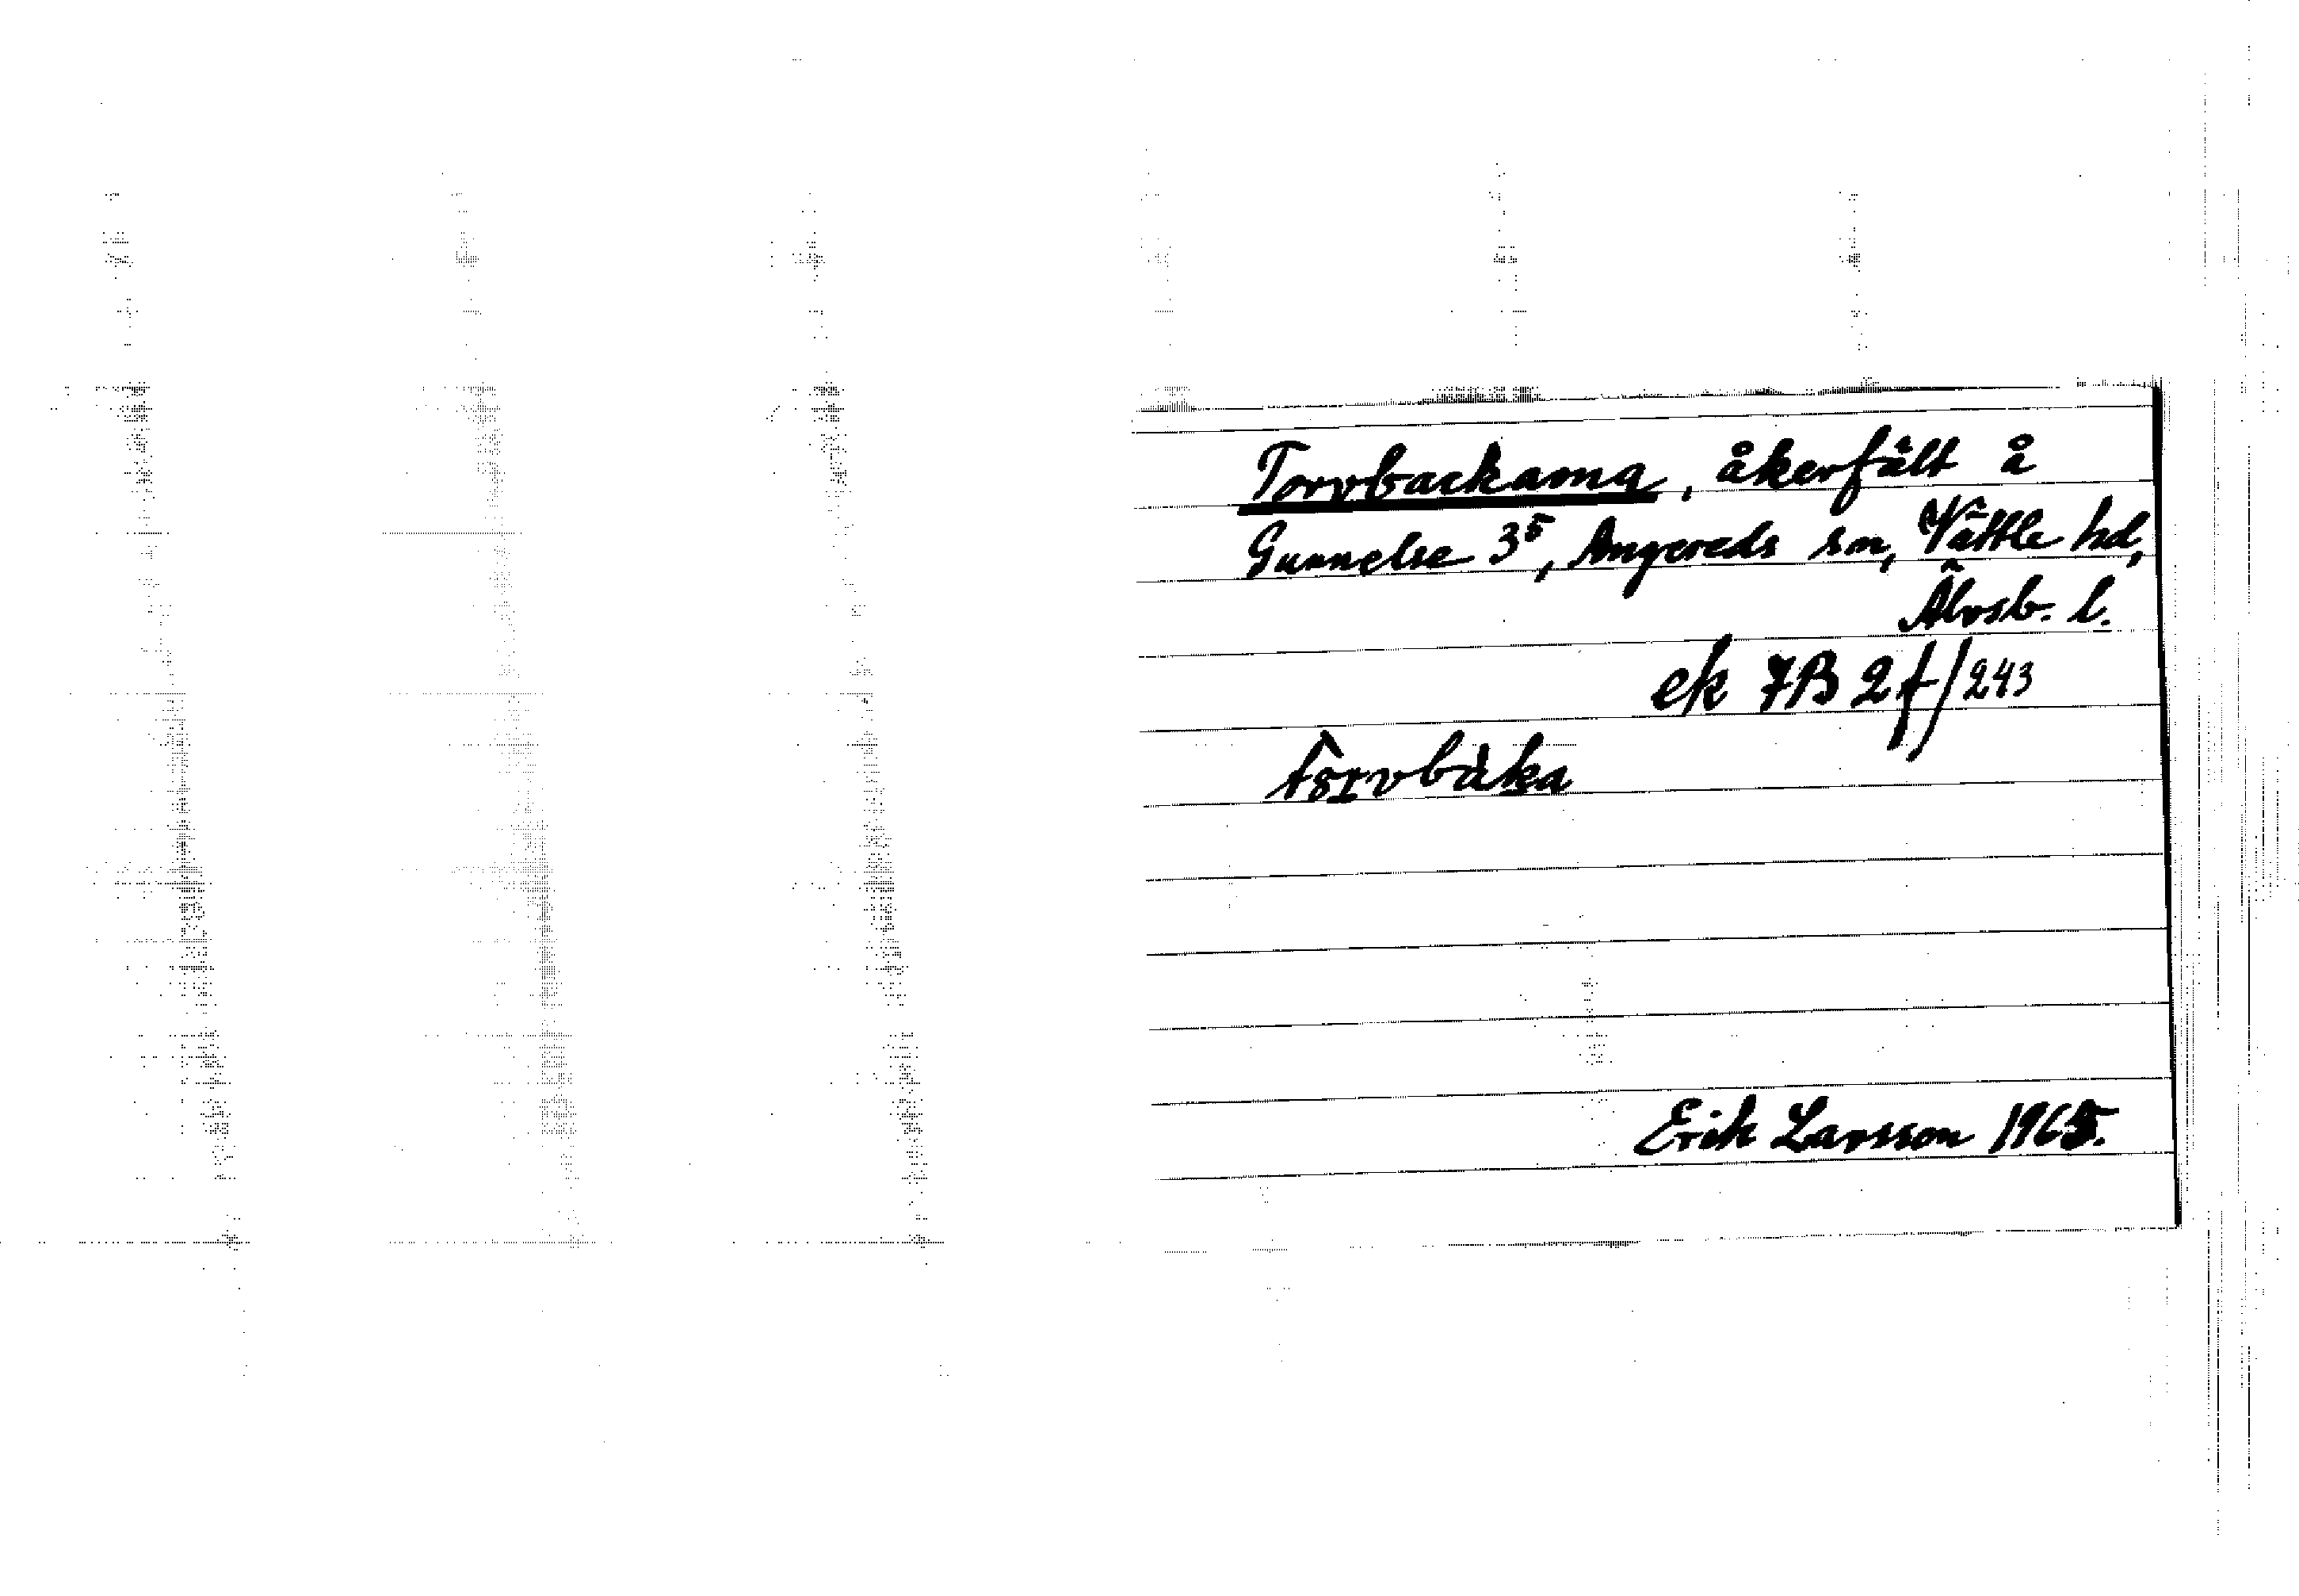 Torvbackarna, åkerfält å
Gunnelse 3⁵, Angereds sn, Vättle hd,
Älvsb. l.
ek 7B 2f/243
Erik Larsson 1965.